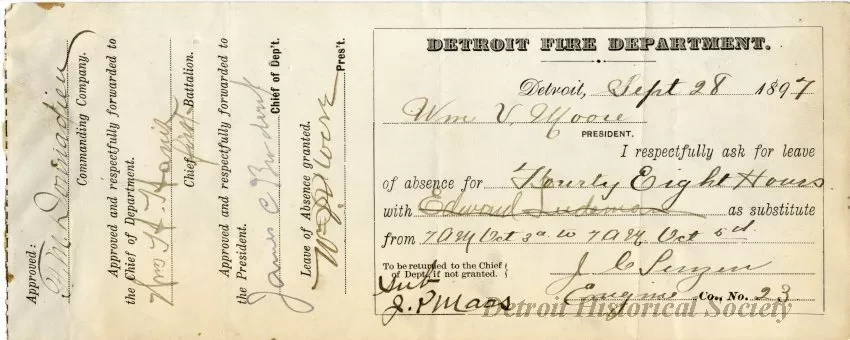 Approved:
Commanding Company.
Approved and respectfully forwarded to
the Chief of Department.
Wm H. Harris
Chief first Battalion.
Approved and respectfully forwarded to
the President.
James C Brodrick
Chief of Dep't.
Leave of Absence granted.
Wm V. Moore
Pres't.
DETROIT FIRE DEPARTMENT.
Detroit, Sept 28 1897
Wm V. Moore
PRESIDENT.
I respectfully ask for leave
of absence for Fourty Eight Hours
with Edward as substitute
from 7 AM Oct 3d to 7 AM Oct 5d
To be returned to the Chief
of Dept., if not granted.
J C
Sub
J. P Maas
Engine Co., No. 23
Detroit Historical Society